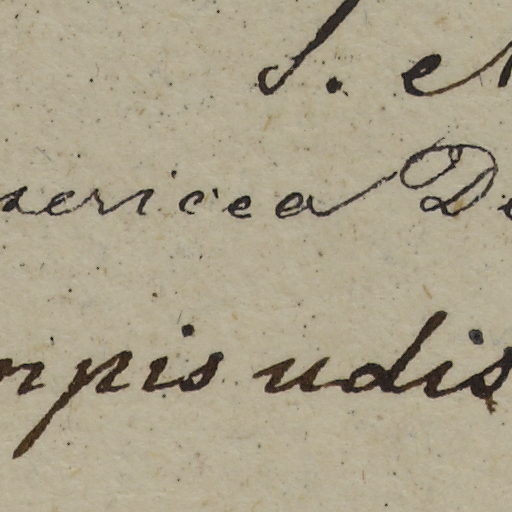 S. e
sericea D
rpis udis